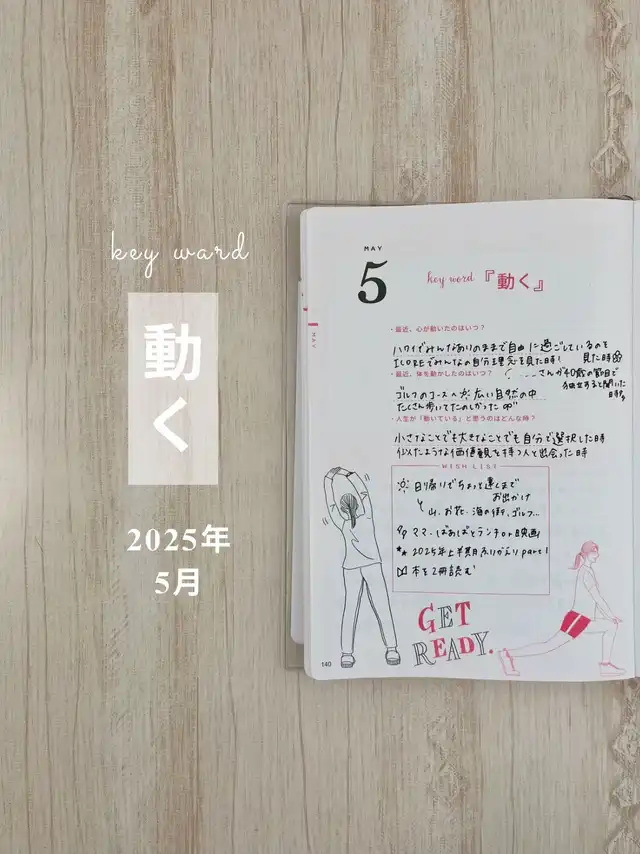 key ward
動く
2025年
5月
MAY
5
key word 『動く』
MAY
・最近、心が動いたのはいつ？
ハワイでみんなありのままで自由に過ごしているのを見た時
COREでみんなの自分理念を見た時！
さんが40歳の節目で
独立すると聞いた
日時
・最近、体を動かしたのはいつ？
ゴルフのコースへ 広い自然の中
たくさん歩いてたのしかった
・人生が「動いている」と思うのはどんな時？
小さなことでも大きなことでも自分で選択した時
似たような価値観を持つ人と出会った時
WISH LIST
日帰りでちょっと遠くまで
お出かけ
山、お花、海の街、ゴルフ...
ママ、ばあばとランチor映画
2025年上半期ふりかえり part1
本を2冊読む
GET
READY.
140